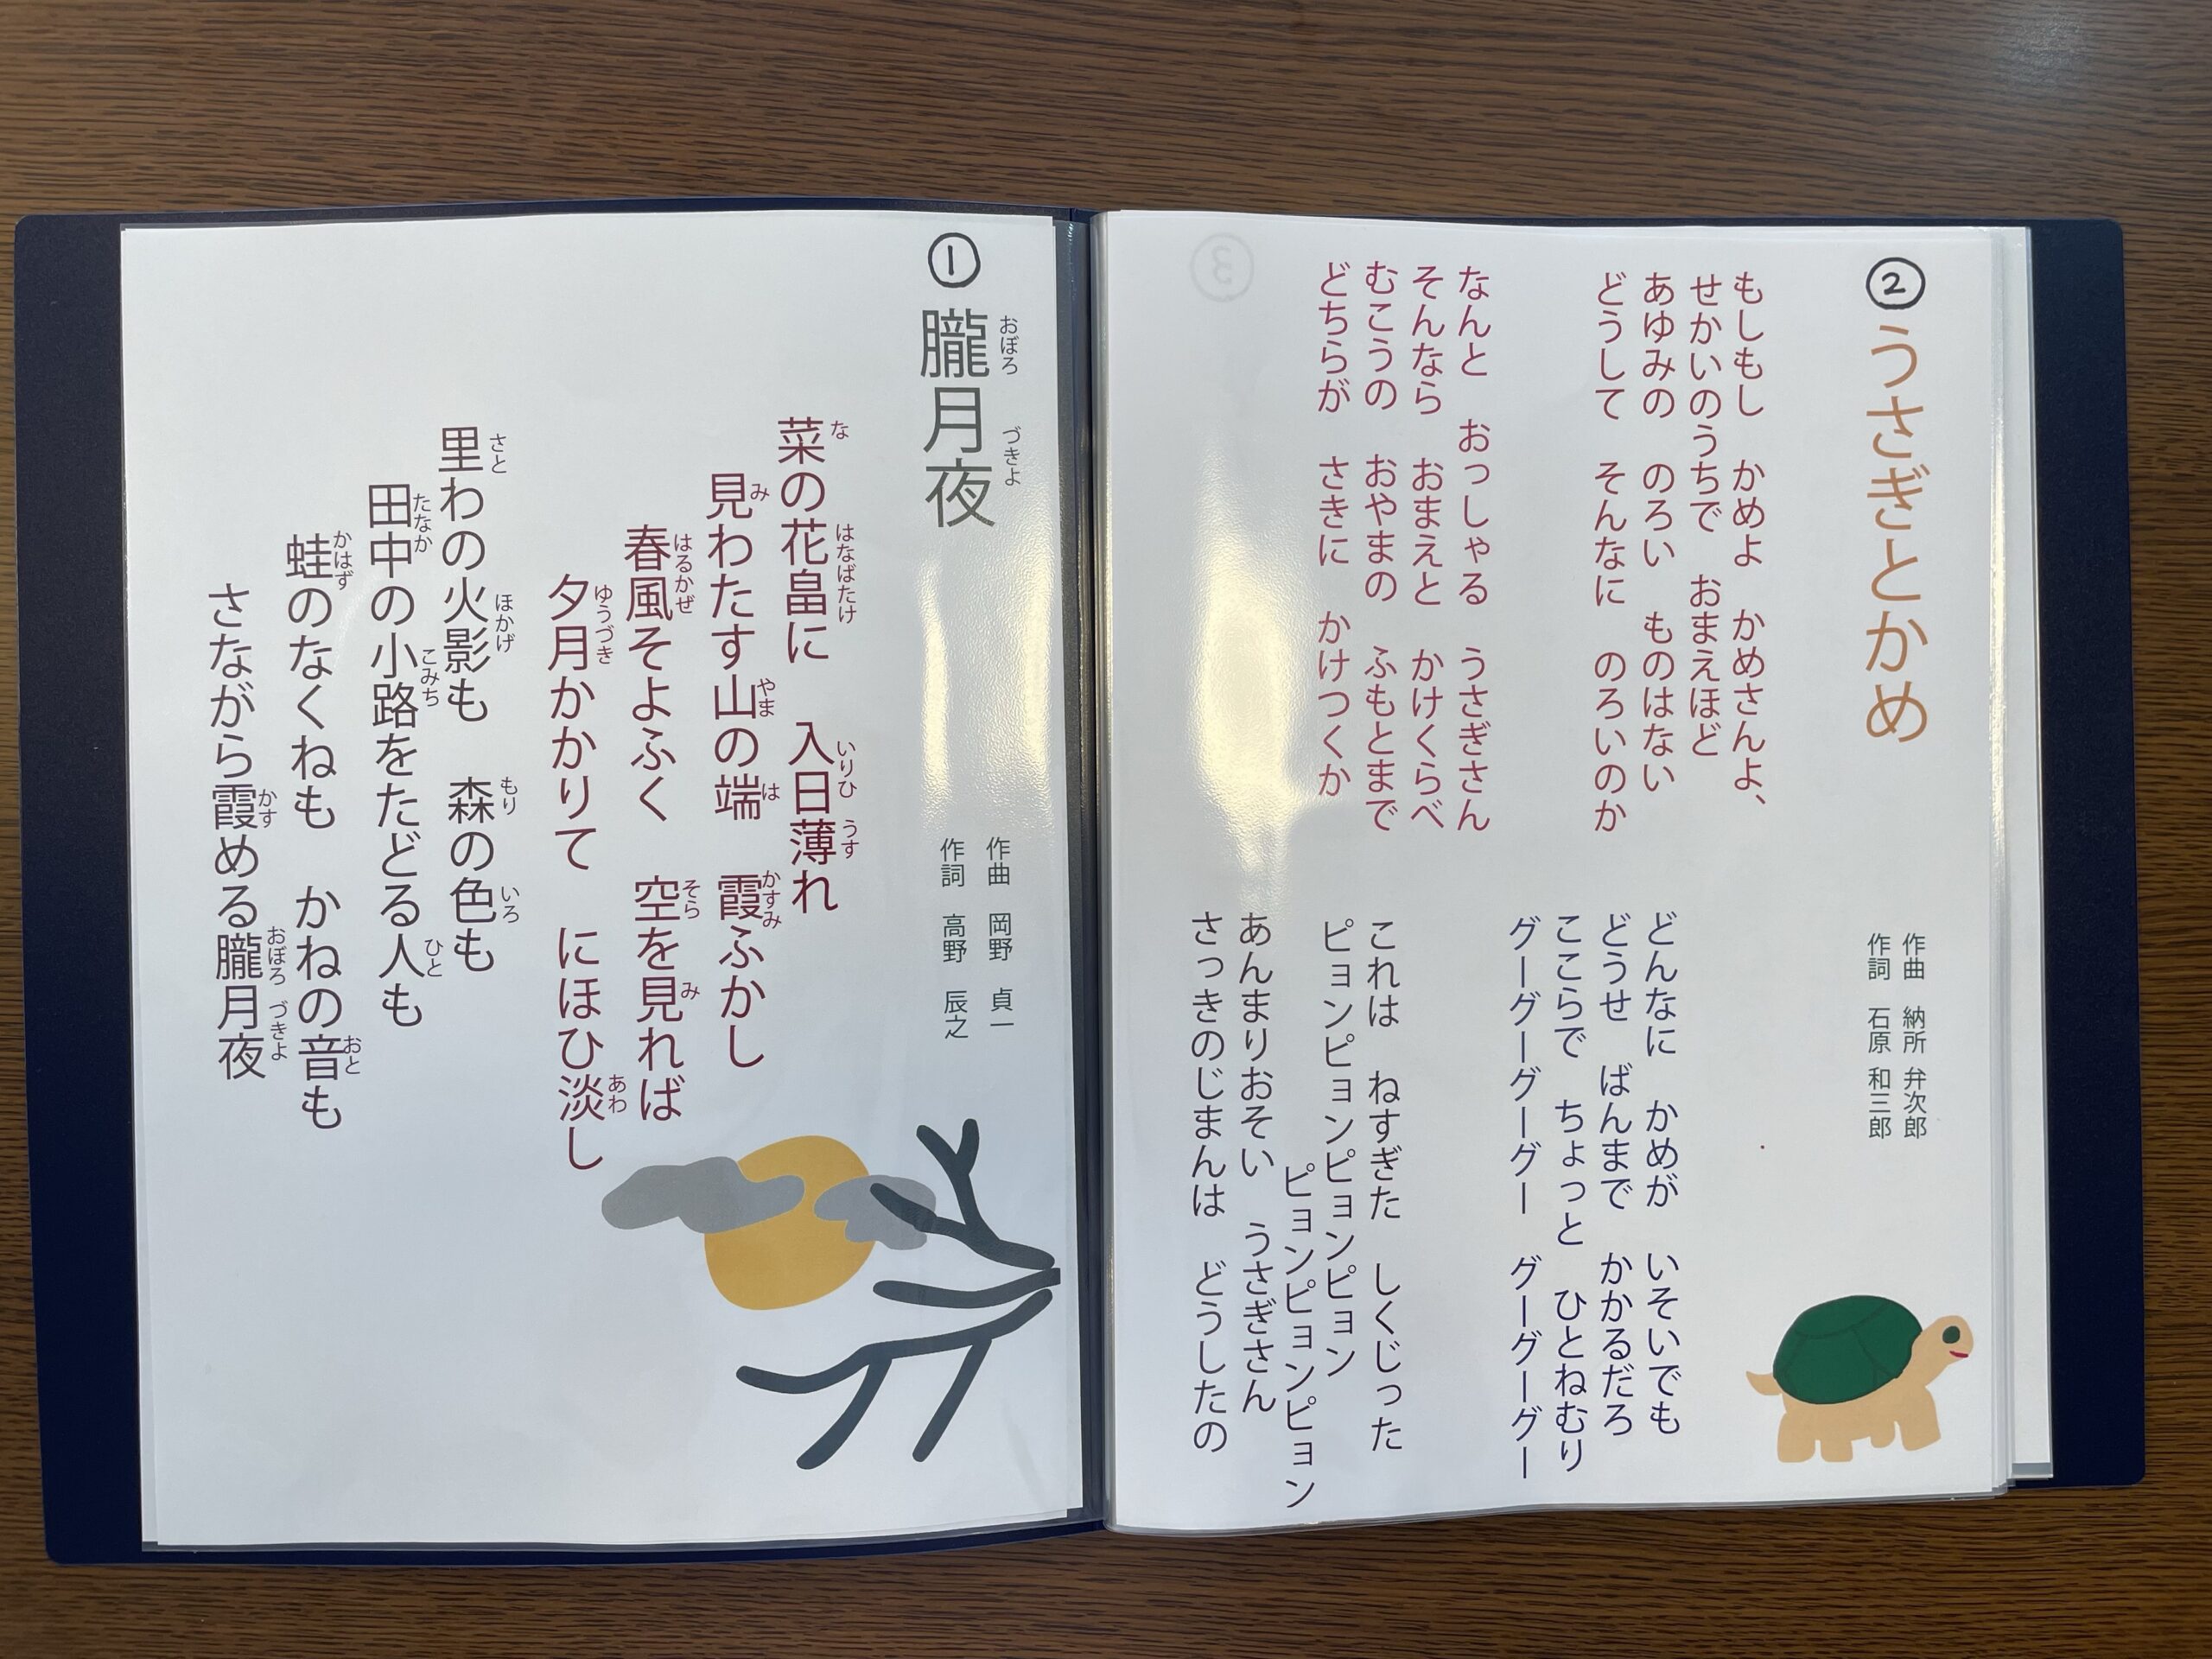 ① 朧月夜
おぼろ づきよ
作曲 岡野 貞一
作詞 高野 辰之
菜の花畠に 入日薄れ
な はなばたけ いりひ うす
見わたす山の端 霞ふかし
み やま は かすみ
春風そよふく 空を見れば
はるかぜ そら み
夕月かかりて にほひ淡し
ゆうづき あわ
里わの火影も 森の色も
さと ほかげ もり いろ
田中の小路をたどる人も
たなか こみち ひと
蛙のなくねも かねの音も
かはず おと
さながら霞める朧月夜
かす おぼろ づきよ
② うさぎとかめ
作曲 納所 弁次郎
作詞 石原 和三郎
もしもし かめよ かめさんよ、
せかいのうちで おまえほど
あゆみの のろい ものはない
どうして そんなに のろいのか
なんと おっしゃる うさぎさん
そんなら おまえと かけくらべ
むこうの おやまの ふもとまで
どちらが さきに かけつくか
どんなに かめが いそいでも
どうせ ばんまで かかるだろ
ここらで ちょっと ひとねむり
グーグーグーグー グーグーグー
これは ねすぎた しくじった
ピョンピョンピョンピョン
ピョンピョンピョンピョン
あんまりおそい うさぎさん
さっきのじまんは どうしたの
③